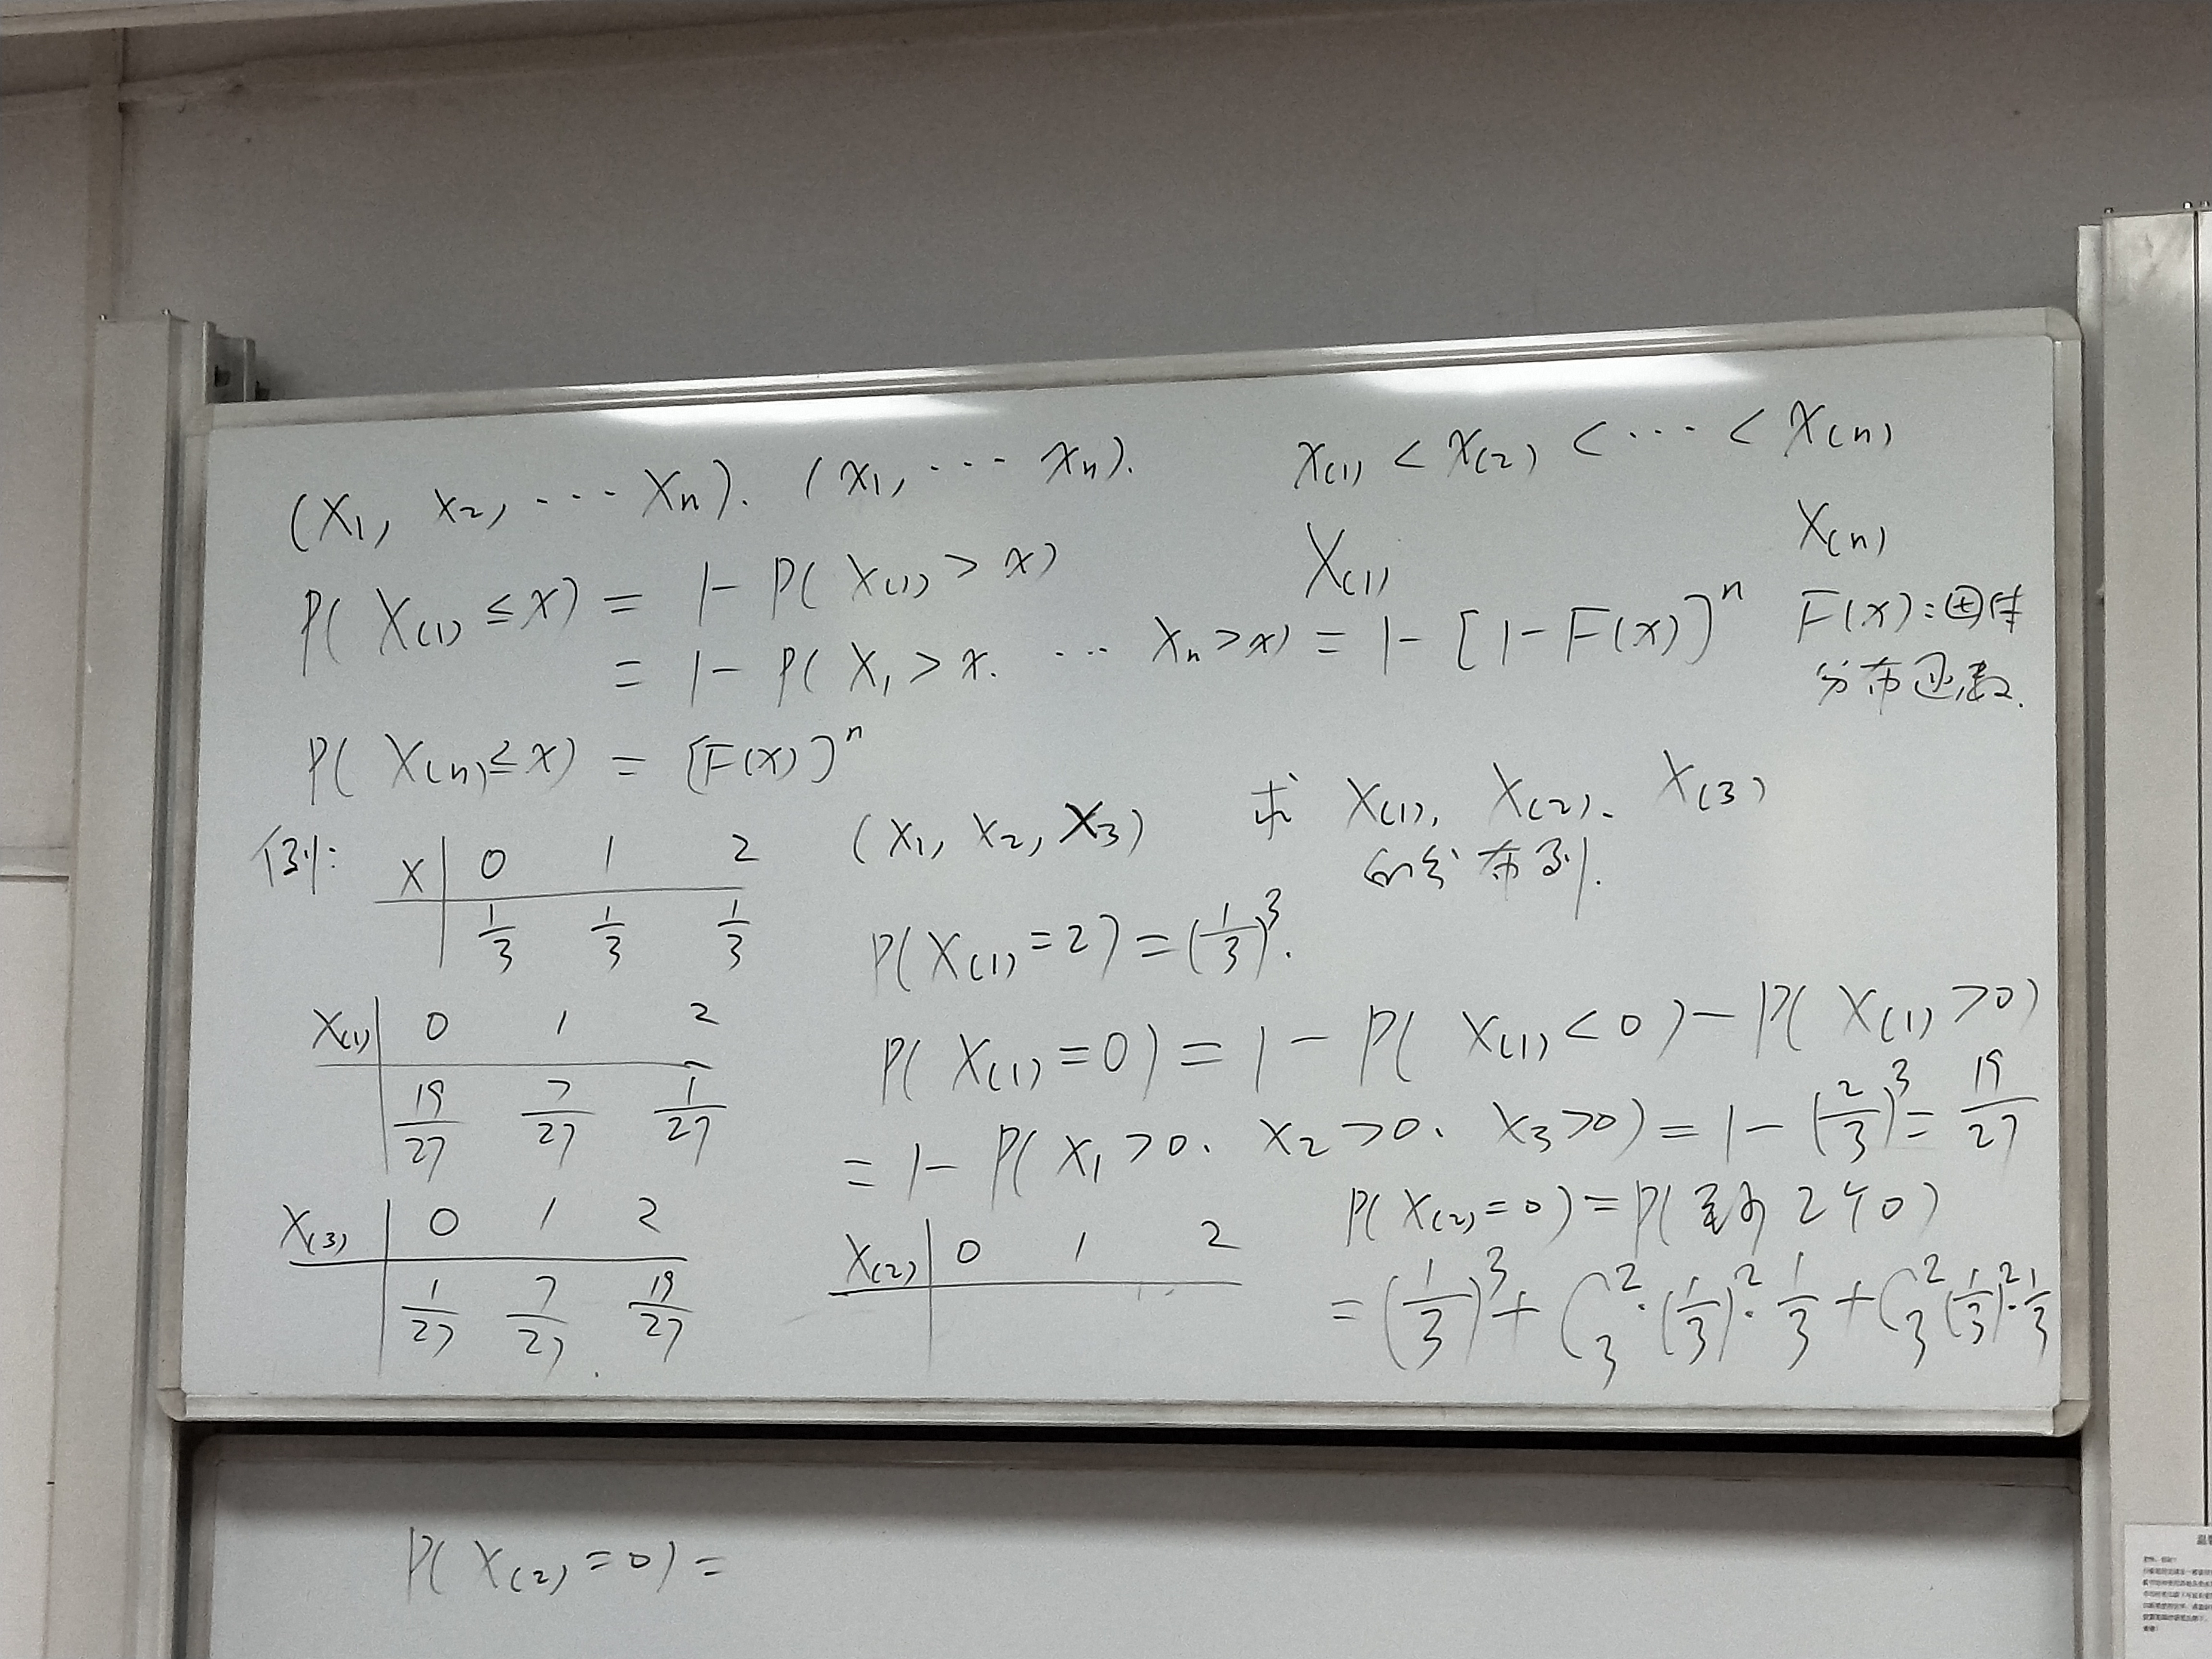 (X₁, X₂, ⋯ Xₙ). (x₁, ⋯ xₙ). x₍₁₎ < x₍₂₎ < ⋯ < x₍ₙ₎
X₍₁₎ X₍ₙ₎
P(X₍₁₎ ≤ x) = 1 - P(X₍₁₎ > x)
= 1 - P(X₁ > x. ⋯ Xₙ > x) = 1 - [1 - F(x)]ⁿ F(x):团体
分布函数.
P(X₍ₙ₎ ≤ x) = [F(x)]ⁿ
例: X | 0 1 2 (X₁, X₂, X₃) 求 X₍₁₎, X₍₂₎、X₍₃₎
的分布列.
1/3 1/3 1/3 P(X₍₁₎ = 2) = (1/3)³.
X₍₁₎ | 0 1 2
19/27 7/27 1/27
P(X₍₁₎ = 0) = 1 - P(X₍₁₎ < 0) - P(X₍₁₎ > 0)
= 1 - P(X₁ > 0. X₂ > 0. X₃ > 0) = 1 - (2/3)³ = 19/27
X₍₃₎ | 0 1 2
1/27 7/27 19/27
X₍₂₎ | 0 1 2
P(X₍₂₎ = 0) = P(至少2个0)
= (1/3)³ + C₃²·(1/3)²·1/3 + C₃²(1/3)²·1/3
P(X₍₂₎ = 0) =